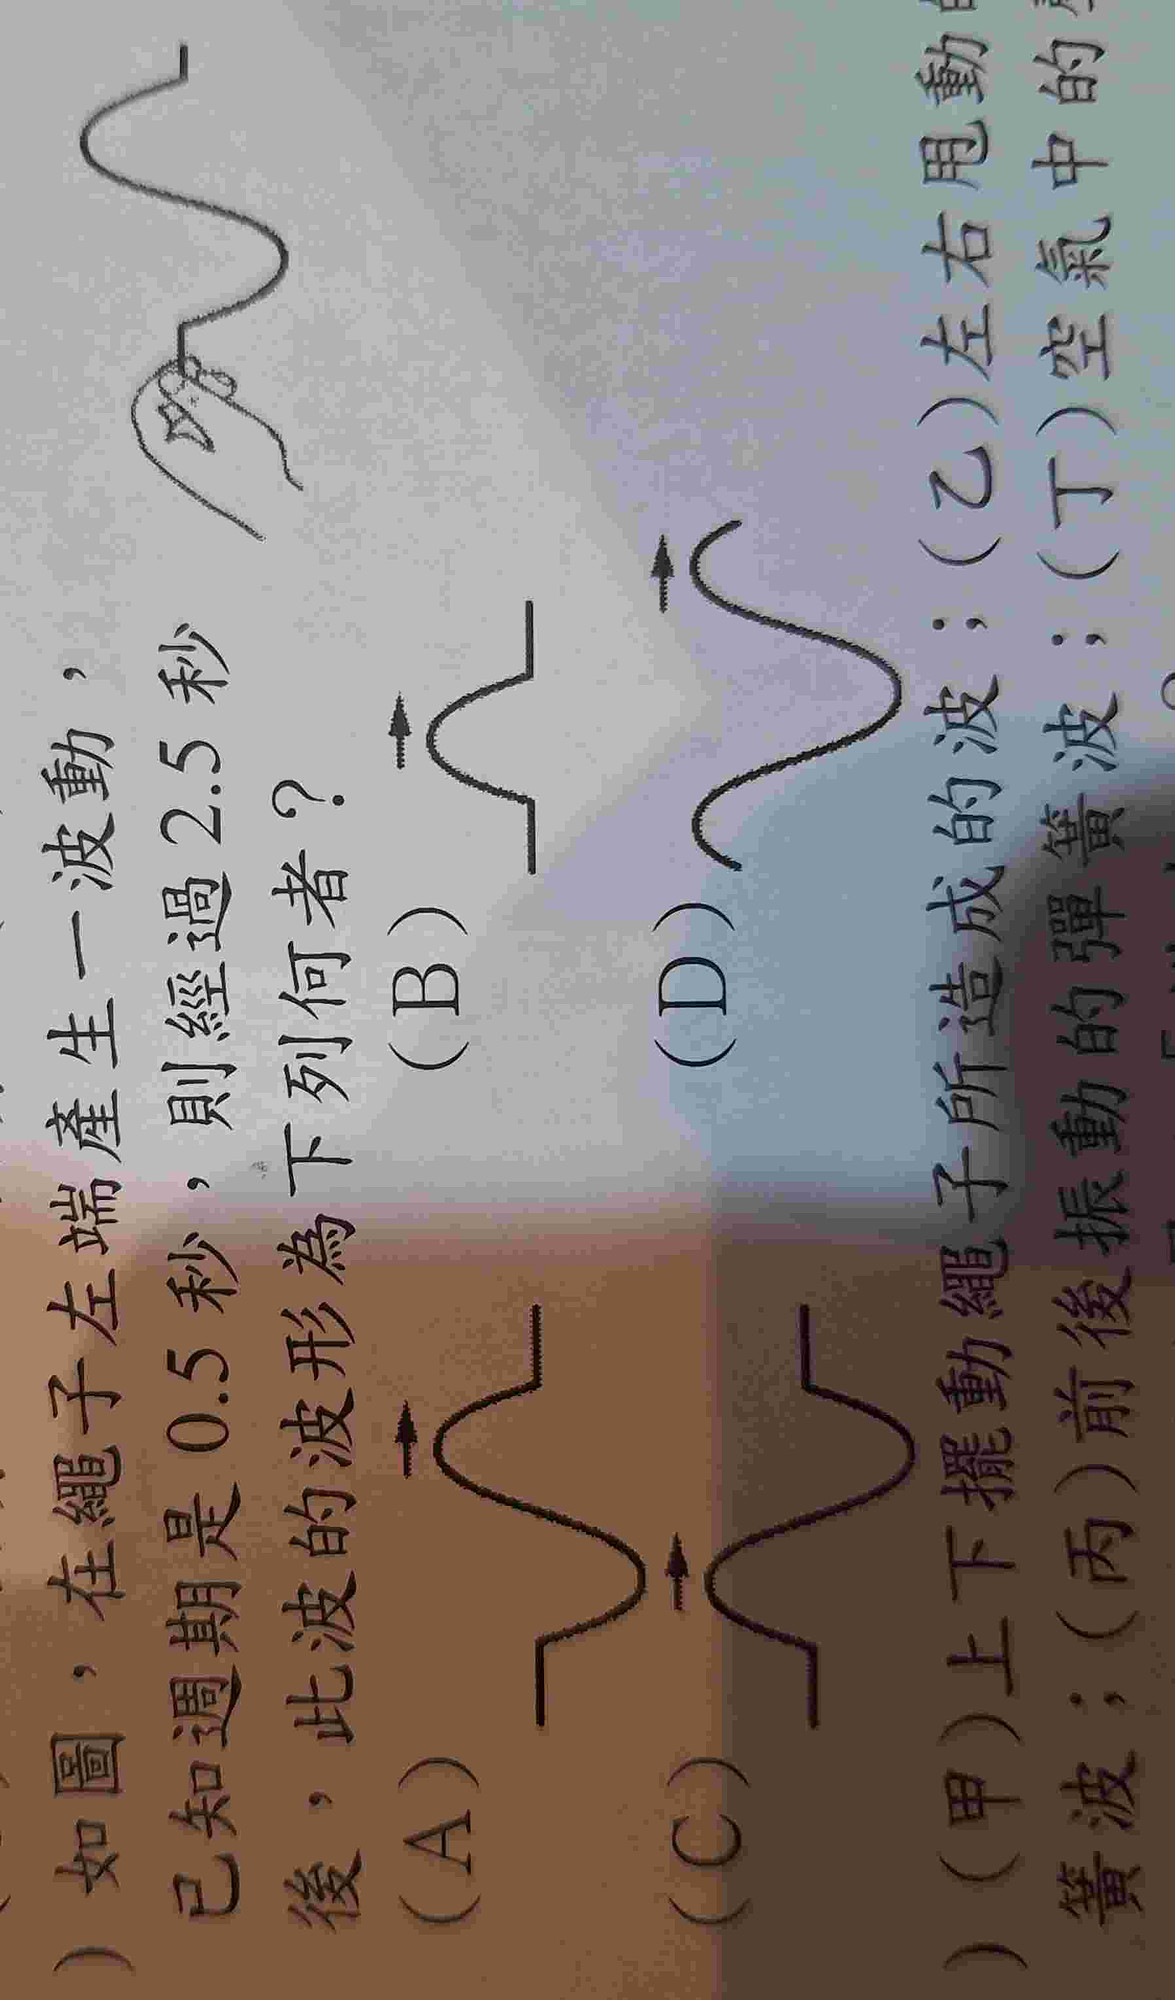 )如圖,在繩子左端產生一波動,
已知週期是0.5秒,則經過2.5秒
後,此波的波形為下列何者?
(A)
(B)
(C)
(D)
)(甲)上下擺動繩子所造成的波;(乙)左右甩動
簧波;(丙)前後振動的彈簧波;(丁)空氣中的